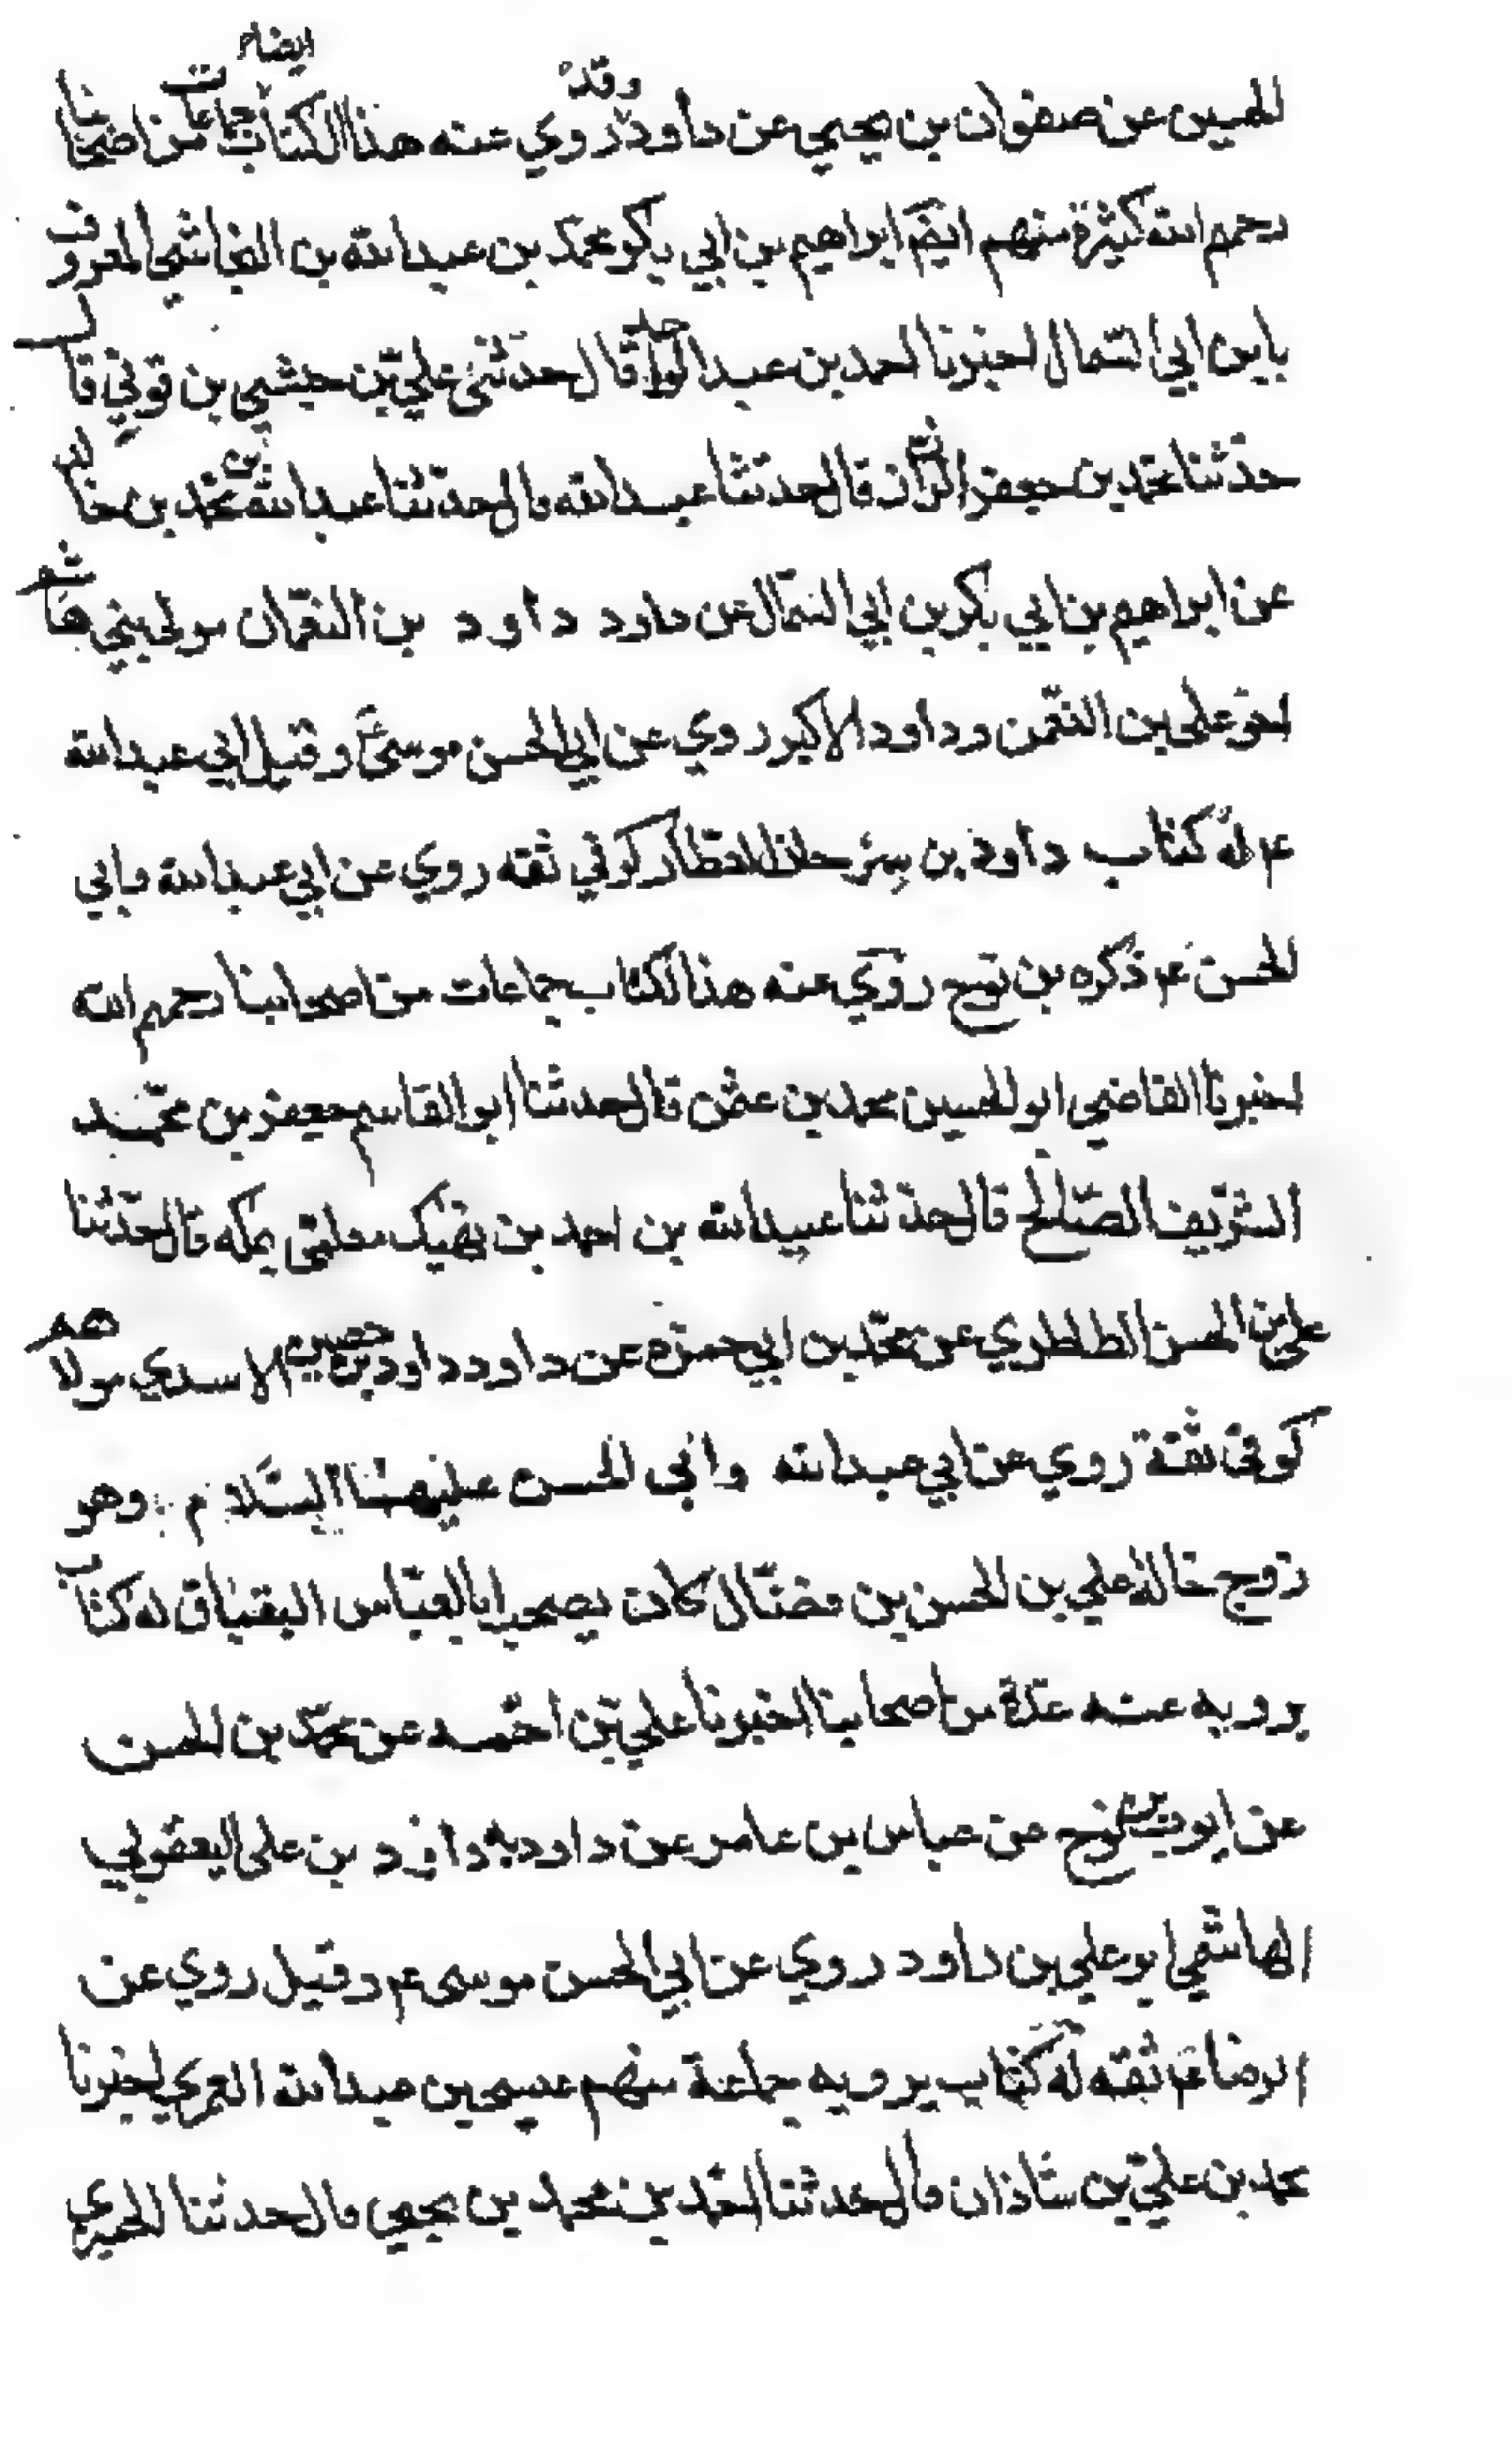 الحسين عن صفوان بن يحيي عن داود وقد روي عنه هذا الكتاب ايضا جماعات من اصحابنا
رحمهم الله كثيرة منهم ايضم ابراهيم بن ابي بكر محمد بن عبد الله بن النجاشي المعروف
بابن ابي السمال اخبرنا احمد بن عبد الواحد قال حدثنى علي بن حبشي بن قوني قال
حدثنا محمد بن جعفر الرزاز قال حدثنا عبد الله قال حدثنا عبد الله بن محمد بن خالد
عن ابراهيم بن ابي بكر بن ابي السمال عن داود داود بن النعمان مولى بني هاشم
اخو علي بن النعمن وداود الاكبر روي عن ابي الحسن موسى ع وقيل ابي عبد الله
ع له كتاب داود بن سرحان العطار كوفي ثقه روي عن ابي عبد الله وابي
الحسن ع ذكره بن نوح روي عنه هذا الكتاب جماعات من اصحابنا رحمهم الله
اخبرنا القاضي ابو الحسين محمد بن عثمن قال حدثنا ابو القاسم جعفر بن محمد
الشريف الصالح قال حدثنا عبيد الله بن احمد بن نهيك معلمى بمكه قال حدثنا
علي بن الحسن الطاطري عن محمد بن ابي حمزه عن داود داود بن حصين الاسدي مولاهم
كوفى ثقة روي عن ابي عبد الله وابى الحسن عليهما السلام وهو
زوج خالة علي بن الحسن بن فضال كان يصحب ابا العباس البقباق له كتاب
يرويه عنه عدة من اصحابنا اخبرنا علي بن احمد عن محمد بن الحسن
عن ايوب بن نوح عن عباس بن عامر عن داود به داود بن على اليعقوبي
الهاشمي ابو علي بن داود روي عن ابي الحسن موسى ع وقيل روي عن
الرضا ع ثقه له كتاب يرويه جماعة منهم عيسى بن عبد الله العمري اخبرنا
محمد بن علي بن شاذان قال حدثنا احمد بن محمد بن يحيى قال حدثنا الحميري